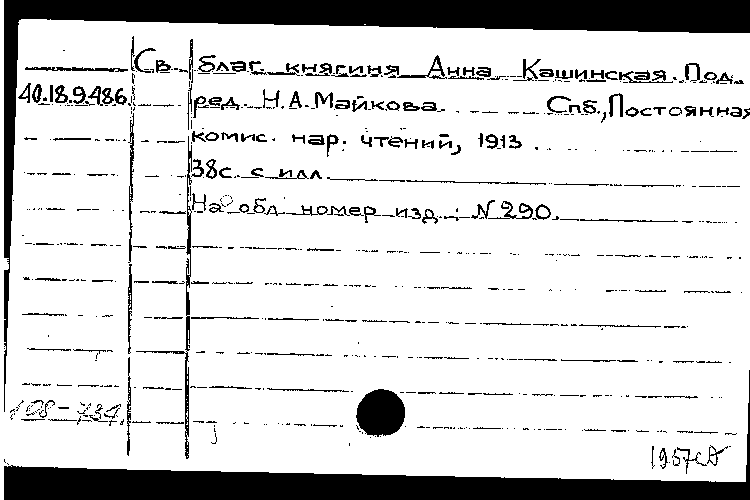 Св. благ. княгиня Анна Кашинская. Под
40.18.9.486. ред. Н.А.Майкова. Спб., Постоянная
комис. нар. чтений, 1913.
38с. с илл.
На обл. номер изд.: N 290.
108-734.